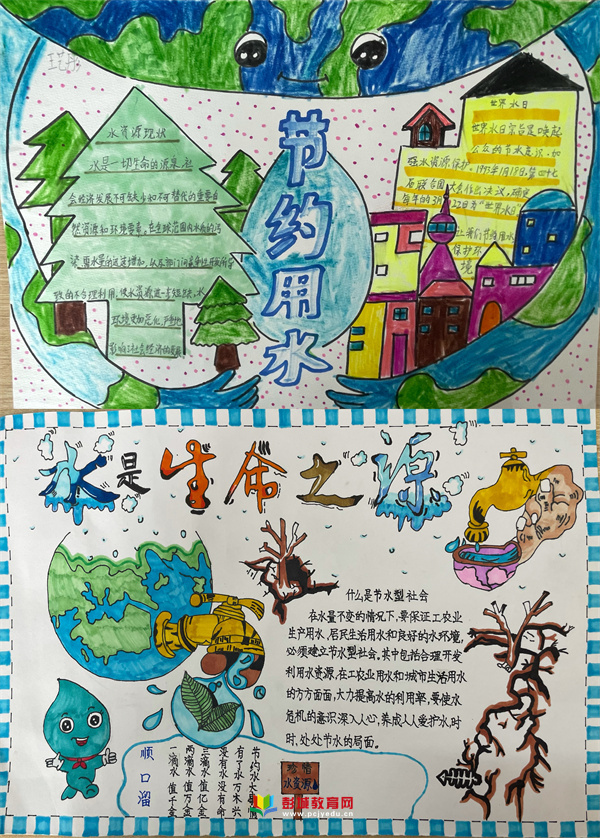 节约用水
水资源现状
水是一切生命的源泉,社
会经济发展不可缺少和不可替代的重要自
然资源和环境要素。在全球范围内水质的污
致的不合理利用,使水资源进一步短缺,水
环境更加恶化,严重地
影响了社会经济的发展
世界水日
世界水日宗旨是唤起
公众的节水意识,加
强水资源保护。1993年1月18日,第四十七
每年的3月22日为“世界水日
让我们节约用水
保护环
境
水是生命之源
什么是节水型社会
在水量不变的情况下,要保证工农业
生产用水、居民生活用水和良好的水环境,
必须建立节水型社会。其中包括合理开发
利用水资源,在工农业用水和城市生活用水
的方方面面,大力提高水的利用率,要使水
危机的意识深入人心,养成人人爱护水,时
时,处处节水的局面。
顺口溜
节约水大事情
有了水万木兴
没有水没有命
三滴水值亿金
两滴水值万金
一滴水值千金
珍惜
水资源
彭城教育网
www.pcjyedu.cn